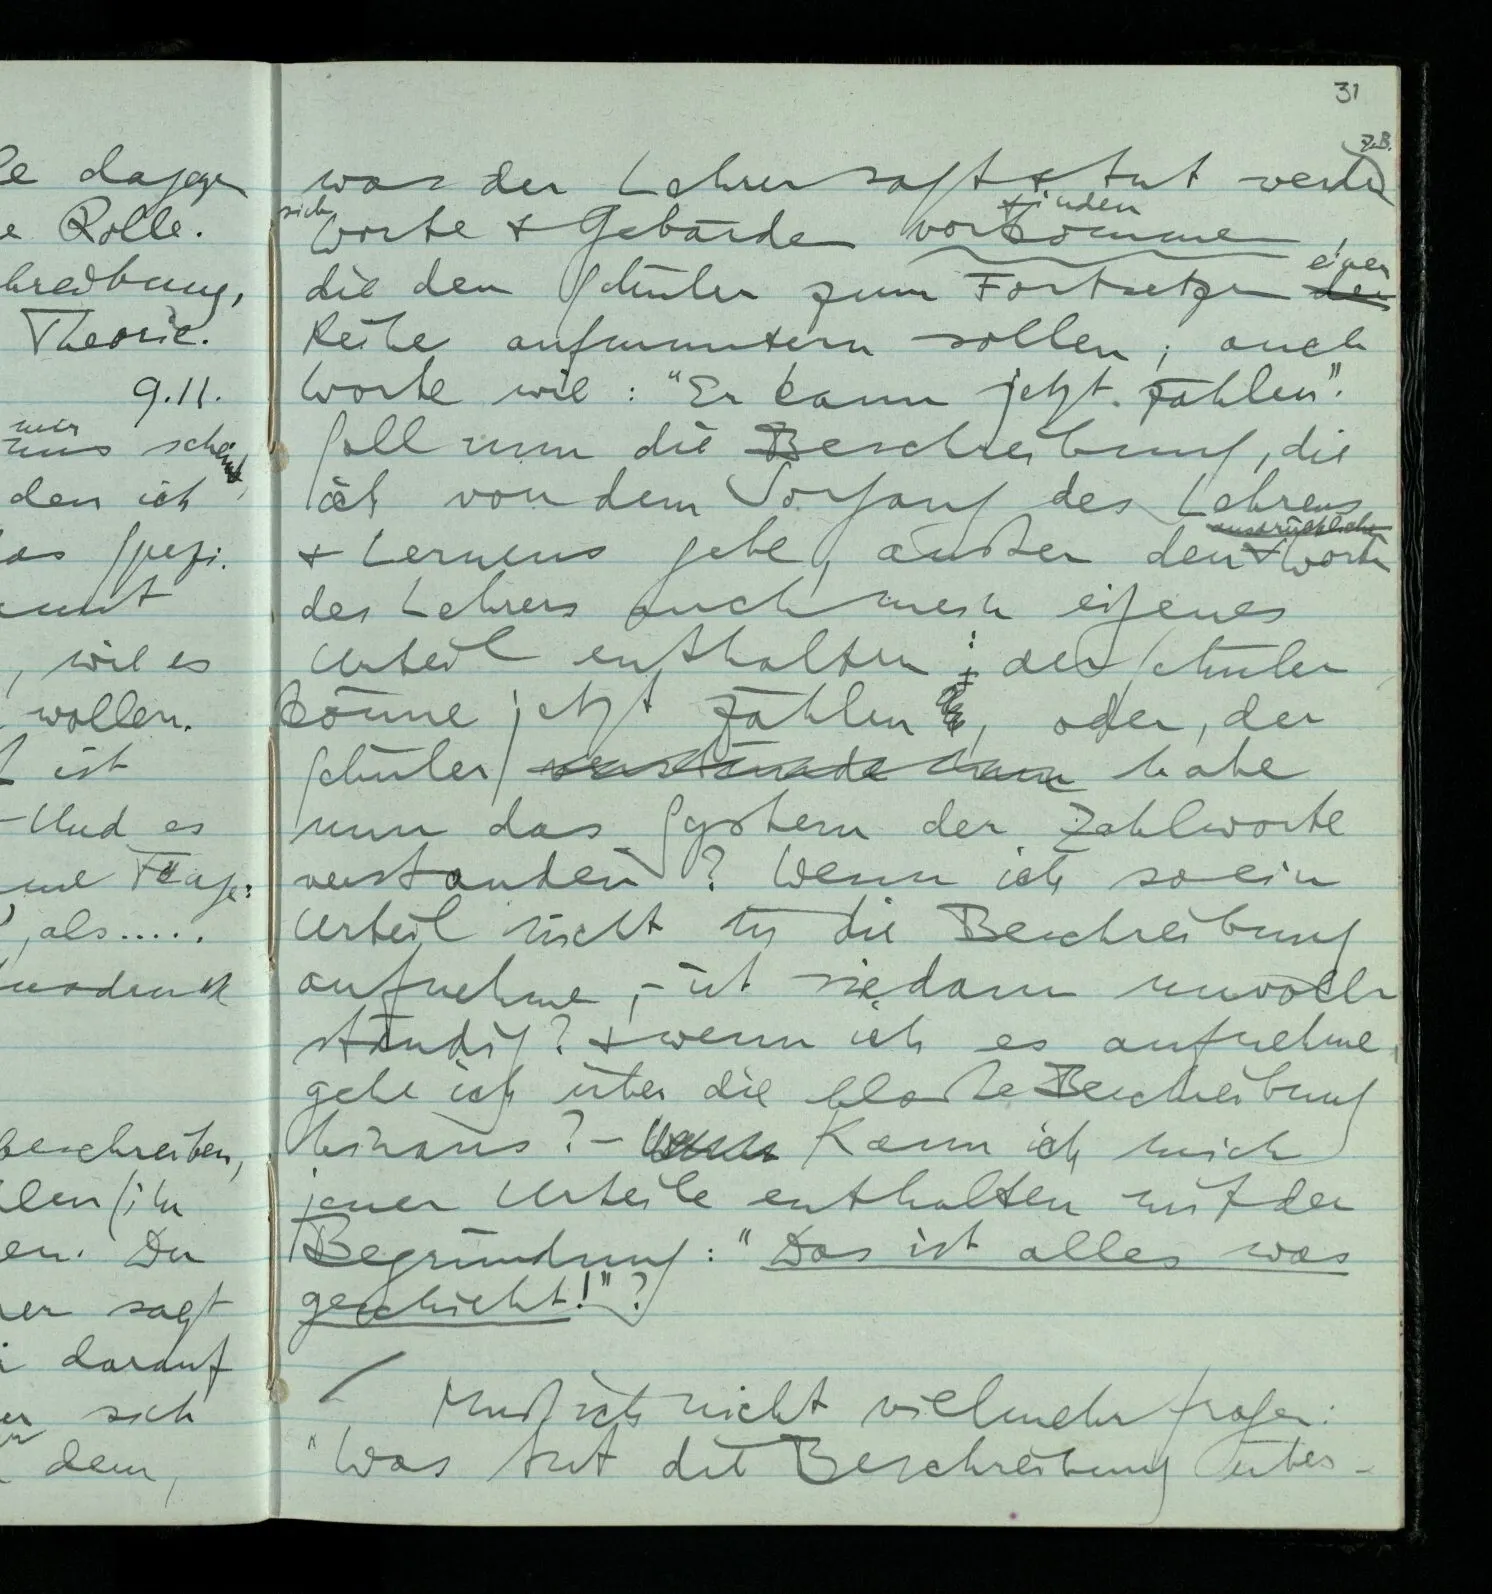 le dagegen
e Rolle.
hreibung,
Theorie.
9.11.
mir
uns scheint,
den ich
as spezi-
, wie es
wollen.
t ist
– Und es
me Frage:
, als.....
beschreiben,
len ihn
en. Der
er sagt
darauf
er sich
dem,
31
z.B.
was der Lehrer sagt & tut werden
sich finden
Worte & Gebärden vorkommen,
einer
die den Schüler zum Fortsetzen der
Reihe aufmuntern sollen; auch
Worte wie: "Er kann jetzt zählen".
Soll nun die Beschreibung, die
ich von dem Vorgang des Lehrens
ausdrückliche
& Lernens gebe, außer den Worten
des Lehrers auch mein eigenes
Urteil enthalten: der Schüler
könne jetzt zählen, oder, der
Schüler verstünde nun habe
nun das System der Zahlworte
verstanden? Wenn ich so ein
Urteil nicht in die Beschreibung
aufnehme, – ist sie dann unvoll-
ständig? & wenn ich es aufnehme,
gehe ich über die bloße Beschreibung
hinaus? – Kann ich mich
jener Urteile enthalten mit der
Begründung: "Das ist alles was
geschieht!"?
/ Muß ich nicht vielmehr fragen:
"Was tut die Beschreibung über-